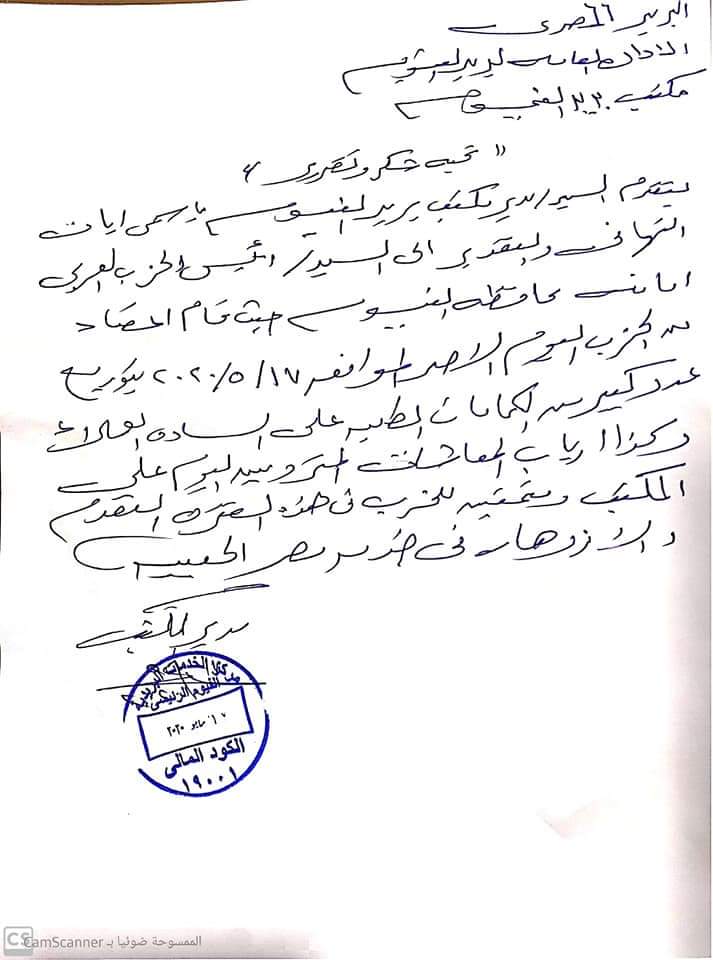 البريد المصرى
الادارة العامه لبريد الفيوم
مكتب بريد الفيوم
" تحيه شكر وتقدير "
يتقدم السيد/ مدير مكتب بريد الفيوم باسمى ايات
التهانى والتقدير الى السيد/ رئيس الحزب العربى
امانه محافظه الفيوم حيث قام اعضاء
من الحزب اليوم الاحد الموافق ١٧/٥/٢٠٢٠ بتوزيع
عدد كبير من الكمامات الطبيه على الساده العملاء
وكذا ارباب المعاشات المترددين اليوم على
المكتب ومتمنيه للحزب فى هذه الفتره التقدم
والازدهار فى خدمه مصر الحبيبه
مدير المكتب
مركز الخدمات البريدية
الفيوم الرئيسى
١٧ مايو ٢٠٢٠
الكود المالى
١٩٠٠١
CS CamScanner الممسوحة ضوئيا بـ